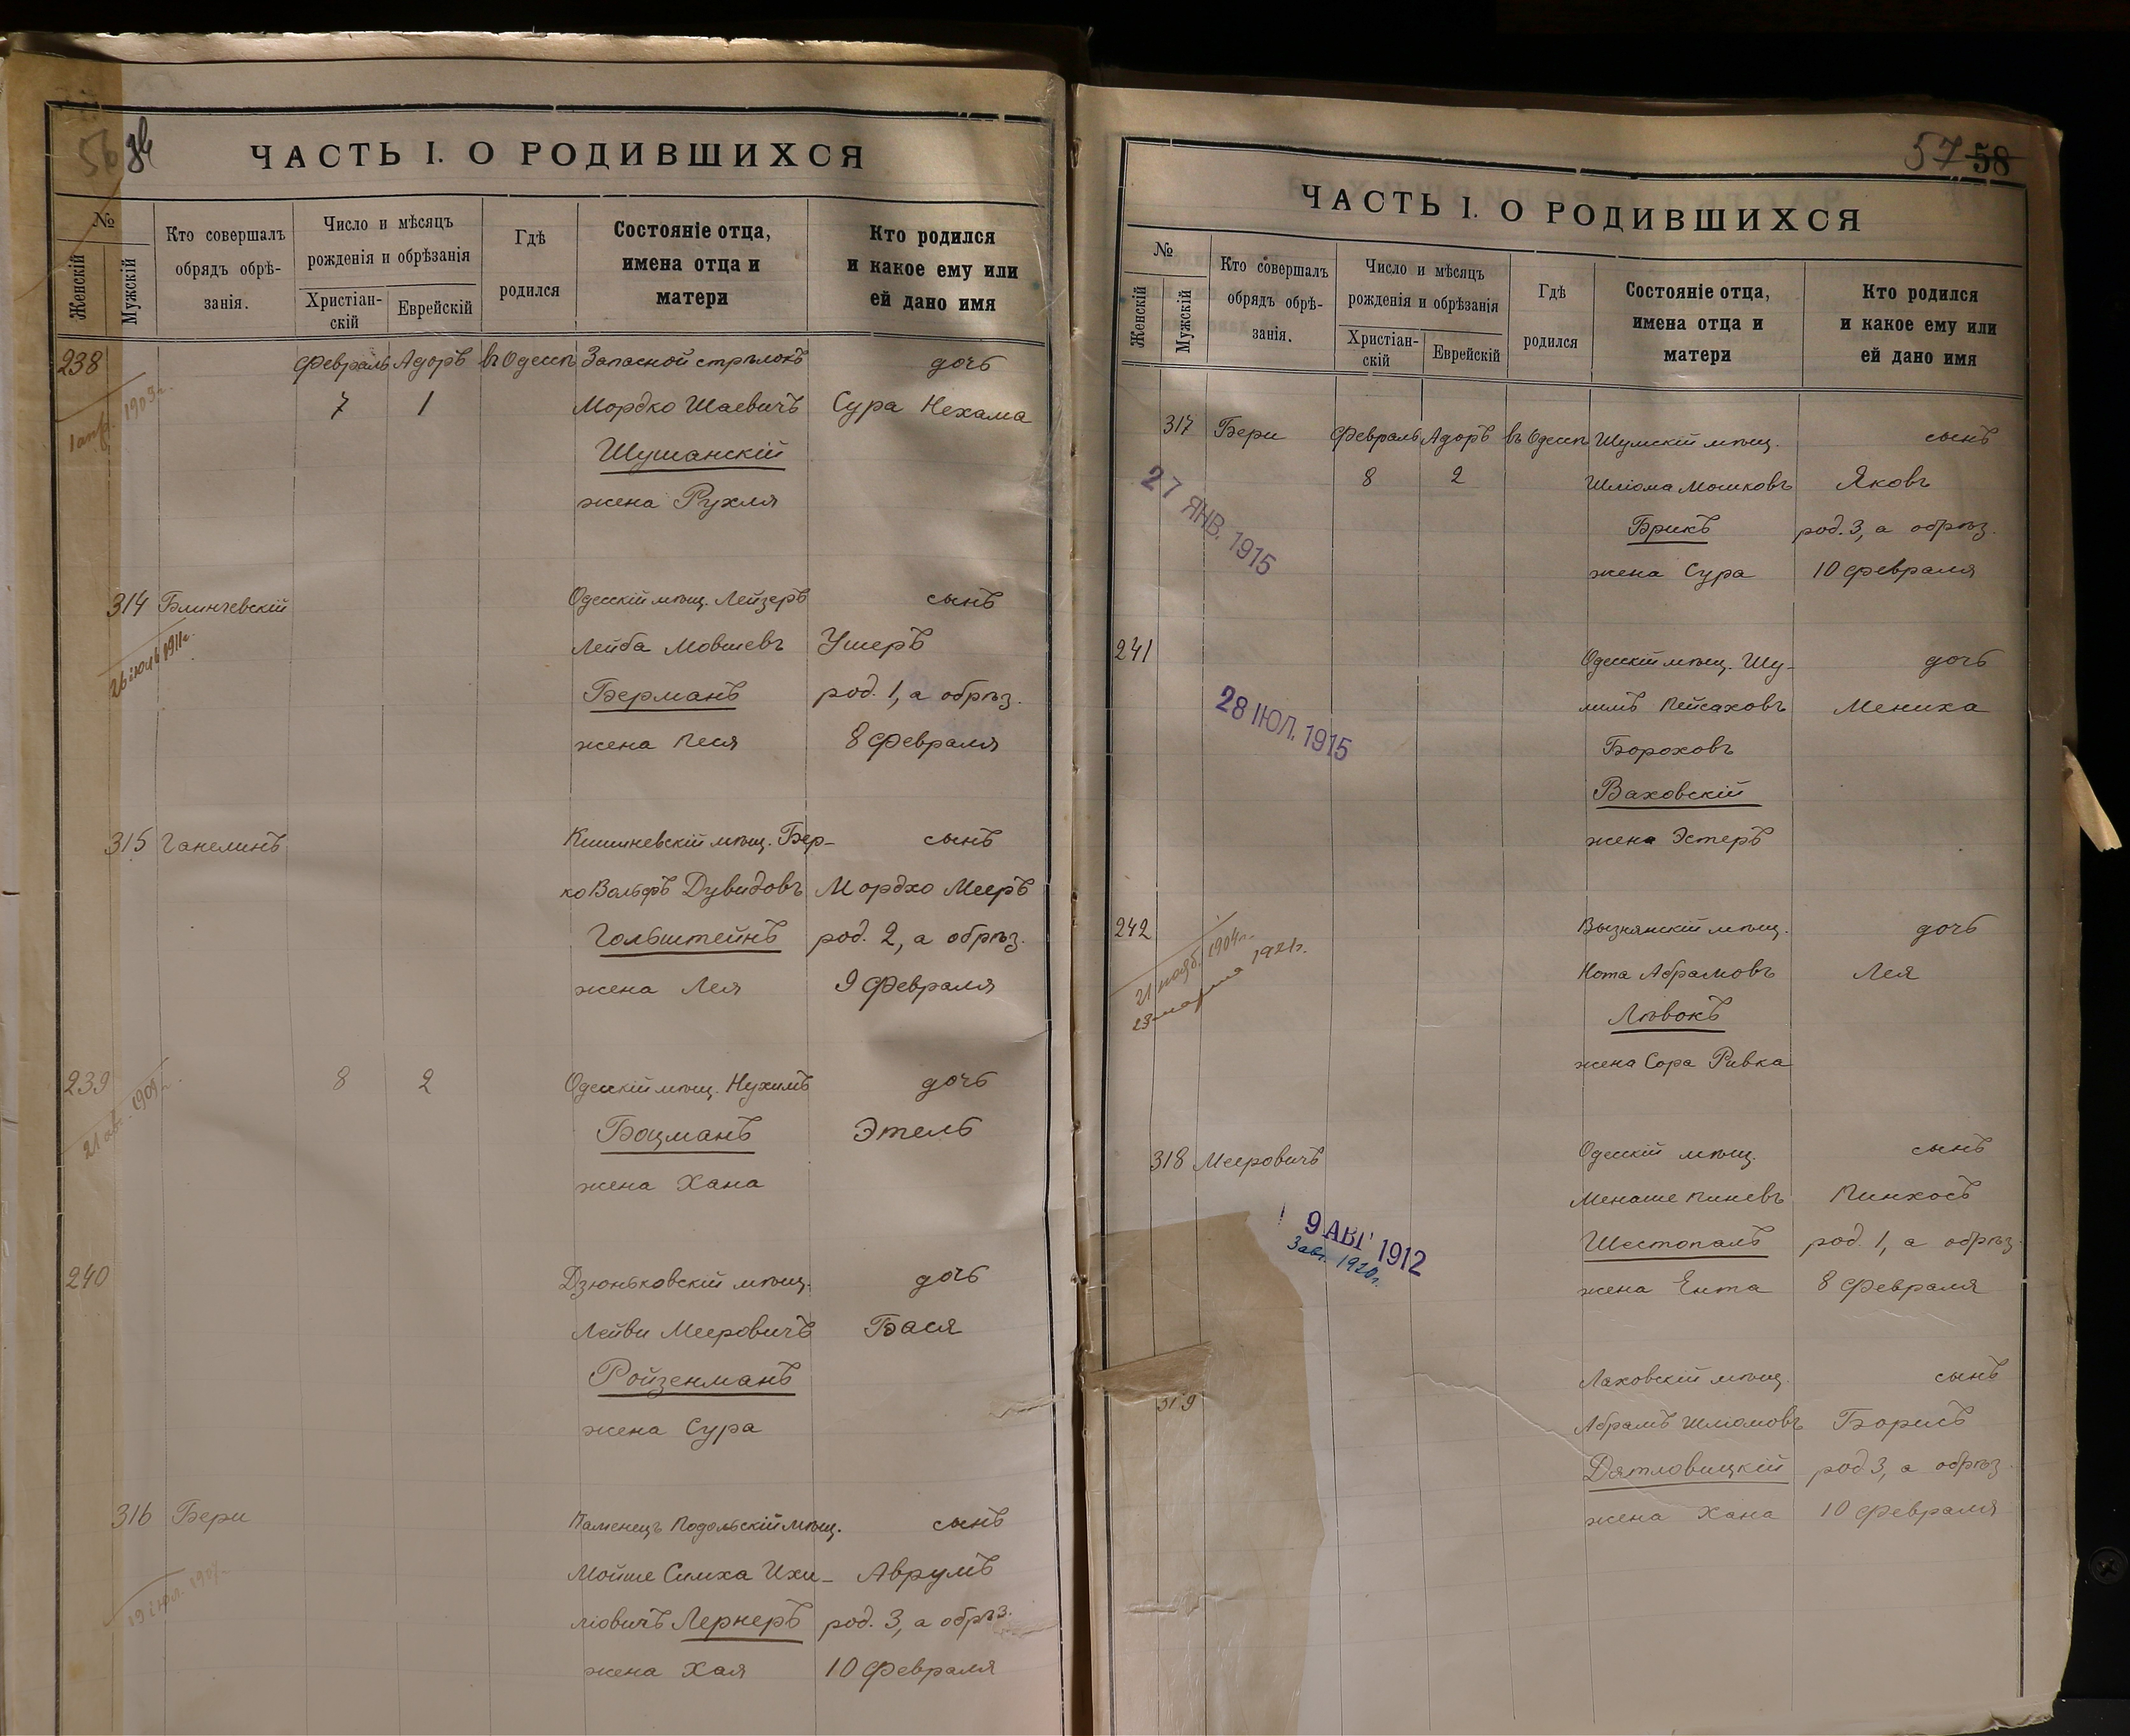 56
ЧАСТЬ I. О РОДИВШИХСЯ
№
Женскій
Мужскій
Кто совершалъ
обрядъ обрѣ-
занія.
Число и мѣсяцъ
рожденія и обрѣзанія
Христіан-
скій
Еврейскій
Гдѣ
родился
Состояніе отца,
имена отца и
матери
Кто родился
и какое ему или
ей дано имя
238 Февраль Адоръ въ Одессѣ Запасной стрѣлокъ дочь
7 1 Мордко Шаевичъ Сура Нехама
Шушанскій
жена Рухля
1909г.
314 Блинчевскій Одесскій мѣщ. Лейзеръ сынъ
Лейба Мовшевъ Ушеръ
Берманъ род. 1, а обрѣз.
жена Песя 8 Февраля
26 іюль 1911г.
315 Ганелинъ Кишиневскій мѣщ. Бер-
сынъ
ко Вольфъ Дувидовъ Мордхо Мееръ
Гольштейнъ род. 2, а обрѣз.
жена Лея 9 Февраля
239 8 2 Одесскій мѣщ. Нухимъ дочь
Боцманъ Этель
жена Хана
21 авг. 1909г.
240 Дзюньковскій мѣщ. дочь
Лейви Мееровичъ Бася
Ройзенманъ
жена Сура
316 Бери Каменецъ Подольскій мѣщ. сынъ
Мойше Симха Ихи- Аврумъ
ліовичъ Лернеръ род. 3, а обрѣз.
жена Хая 10 Февраля
57 58
ЧАСТЬ I. О РОДИВШИХСЯ
№
Женскій
Мужскій
Кто совершалъ
обрядъ обрѣ-
занія.
Число и мѣсяцъ
рожденія и обрѣзанія
Христіан-
скій
Еврейскій
Гдѣ
родился
Состояніе отца,
имена отца и
матери
Кто родился
и какое ему или
ей дано имя
317 Бери Февраль Адоръ въ Одессѣ Шумскій мѣщ. сынъ
8 2 Шліома Мошковъ Яковъ
Брикъ род. 3, а обрѣз.
жена Сура 10 Февраля
27 ЯНВ. 1915
241 Одесскій мѣщ. Шу-
дочь
лимъ Пейсаховъ Мениха
Бороховъ
Ваховскій
жена Эстеръ
28 ІЮЛ. 1915
242 Вызнянскій мѣщ. дочь
Нота Абрамовъ Лея
Лѣвокъ
жена Сора Ривка
21 нояб. 1904г.
23 марта 1921г.
318 Мееровичъ Одесскій мѣщ. сынъ
Менаше Пиневъ Пинхосъ
Шестопалъ род. 1, а обрѣз.
жена Ента 8 Февраля
9 АВГ 1912
3 авг. 1920г.
319 Лаховскій мѣщ. сынъ
Абрамъ Шлюмовъ Борисъ
Дятловицкій род 3, а обрѣз.
жена Хана 10 Февраля